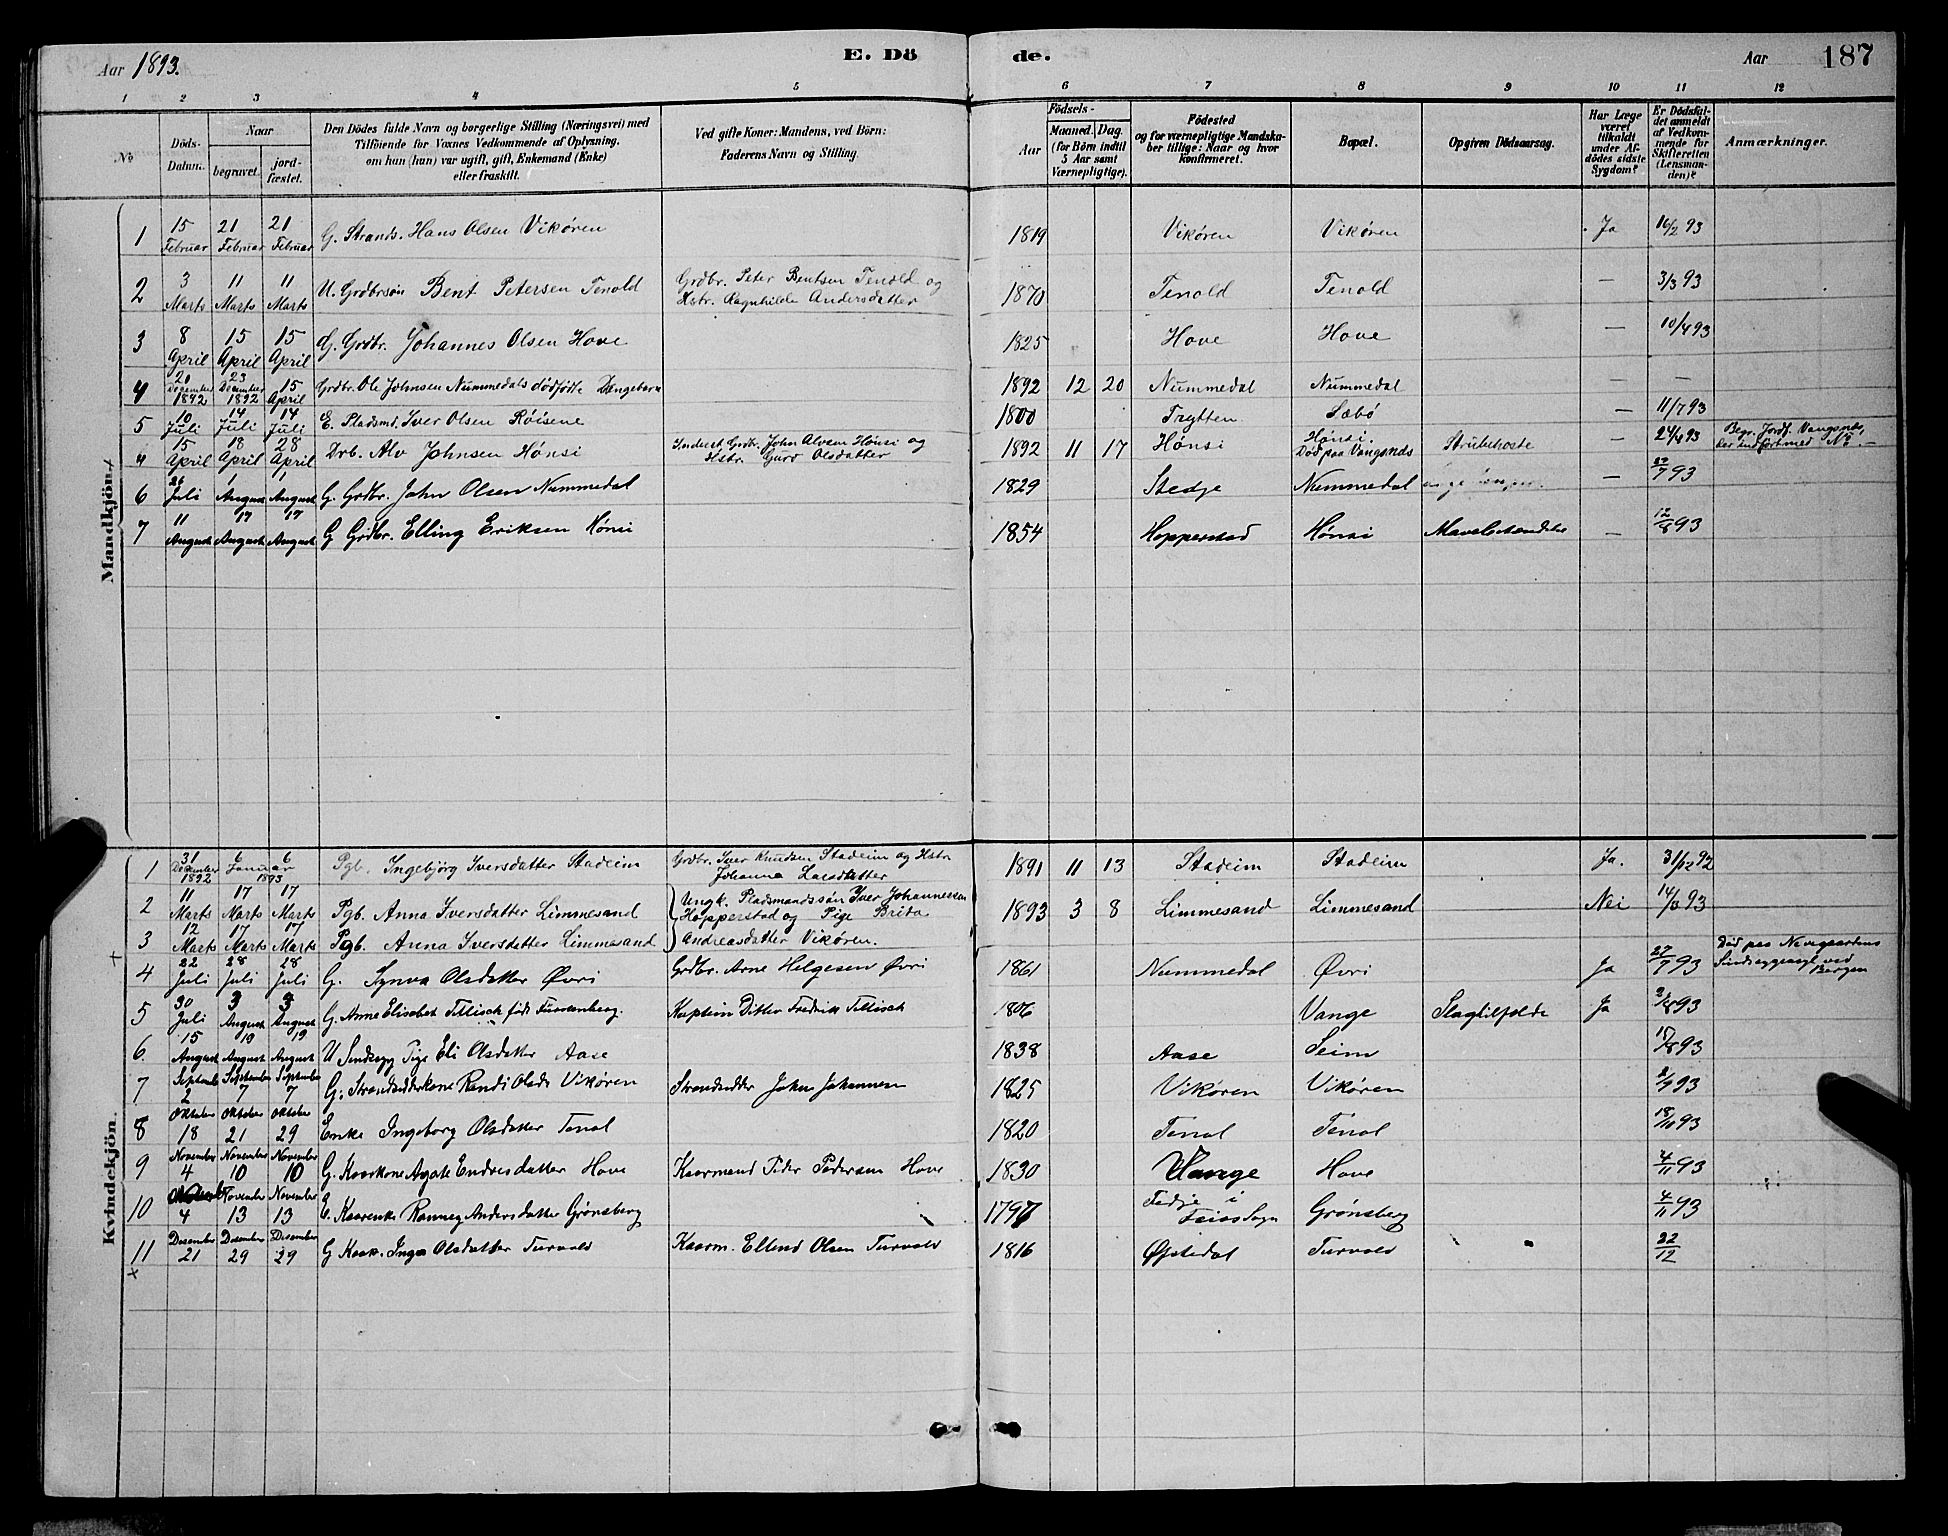 Aar 1893.
E. Dö
de.
Aar
187
1 2 3 4 5 6 7 8 9 10 11 12
No
Döds-
Datum.
Naar
begravet.
jord-
fæstet.
Den Dödes fulde Navn og borgerlige Stilling (Næringsvei) med
Tilföiende for Voxnes Vedkommende af Oplysning,
om hun (han) var ugift, gift, Enkemand (Enke)
eller fraskilt.
Ved gifte Koner: Mandens, ved Börn:
Faderens Navn og Stilling.
Födsels-
Aar
Maaned.
Dag.
(for Börn indtil
5 Aar samt
Værnepligtige).
Födested
og for værnepligtige Mandska-
ber tillige: Naar og hvor
konfirmeret.
Bopæl.
Opgiven Dödsaarsag.
Har Læge
været
tilkaldt
under Af-
dödes sidste
Sygdom?
Er Dödsfal-
det anmeldt
af Vedkom-
mende for
Skifteretten
(Lensman-
den)?
Anmærkninger.
Mandkjön.
1 15 Februar 21 Februar 21 Februar G. Strands. Hans Olsen Vikøren 1819 Vikøren Vikøren Ja 16/2 93
2 3 Marts 11 Marts 11 Marts U. Grdbrsön Bent Petersen Tenold Grdbr. Peter Bentsen Tenold og
Hstr. Ragnhilda Andersdatter 1870 Tenold Tenold — 3/3 93
3 8 April 15 April 15 April G. Grdbr. Johannes Olsen Hove 1825 Hove Hove — 10/4 93
4 20 December 1892 23 December 1892 15 April Grdbr. Ole Johnsen Nummedals dödfödte Drengebarn 1892 12 20 Nummedal Nummedal — —
5 10 Juli 14 Juli 14 Juli E. Pladsmd. Iver Olsen Röisene 1800 Trytten Sæbö — 11/7 93
4 15 April 18 April 28 April Drb. Alv Johnsen Hønsi Inderst Grdbr. John Alvsen Hönsi og
Hstr. Guro Olsdatter 1892 11 17 Hønsi Hønsi.
Död paa Vangsnes Strubehoste 24/4 93 Begr. Jordf. Vangsnes,
her indfört med No —
6 26 Juli 1 August 1 August G. Grdbr. John Olsen Nummedal 1829 Stedje Nummedal — 27/7 93
7 11 August 17 August 17 August G Grdbr. Elling Eriksen Hønsi 1854 Hopperstad Hønsi — 12/8 93
Kvindekjön.
1 31 December 1892 6 Januar 6 1893 Pgb. Ingebjörg Iversdatter Stadeim Grdbr. Iver Knudsen Stadeim og Hstr
Johanna Larsdatter 1891 11 13 Stadeim Stadeim Ja. 31/12 92
2 11 Marts 17 Marts 17 Marts Pgb. Anna Iversdatter Limmesand Ungk. Pladsmandssön Iver Johannessen
Hopperstad og Pige Brita 1893 3 8 Limmesand Limmesand Nei 14/3 93
3 12 Marts 17 Marts 17 Marts Pgb. Anna Iversdatter Limmesand Andreasdatter Vikøren.
4 22 Juli 28 Juli 28 Juli G. Synva Olsdatter Øvri Grdbr. Arne Helgesen Øvri 1861 Nummedal Øvri Ja 27/7 93 Död paa Nevegaardens
Sindssygeasyl ved
Bergen
5 30 Juli 3 August 3 August G. Anne Elisabet Tillisch född Fürstenberg. Kaptein Ditlev Fredrik Tillisch 1806 Vange Slagtilfælde Ja 2/8 93
6. 15 August 19 August 19 August U Sindssyg Pige Eli Olsdatter Aase 1838 Aase Seim 17/8 93
7 September 2 September 7 September 7 G. Strandsidderkone Randi Olsdr Vikøren Strandsidder John Johannesen 1825 Vikøren Vikøren 2/9 93
8 Oktober 18 Oktober 21 Oktober 29 Enke Ingeborg Olsdatter Tenol 1820 Tenol Tenol 18/10 93
9 November 4 November 10 November 10 G. Kaarkone Agate Endresdatter Hove Kaarmand Peder Pedersen Hove 1830 Vange Hove 4/11 93
10 4 November 13 November 13 E. Kaarenke Ranneg Andersdatter Grønsberg 1797 Fedje i
Feios Sogn Grønsberg 4/11 93
11 Desember 21 Desember 29 Desember 29 G Kaark. Inga Olsdatter Turvold Kaarm. Ellend Olsen Turvold 1816 Øpstedal Turvold 22/12